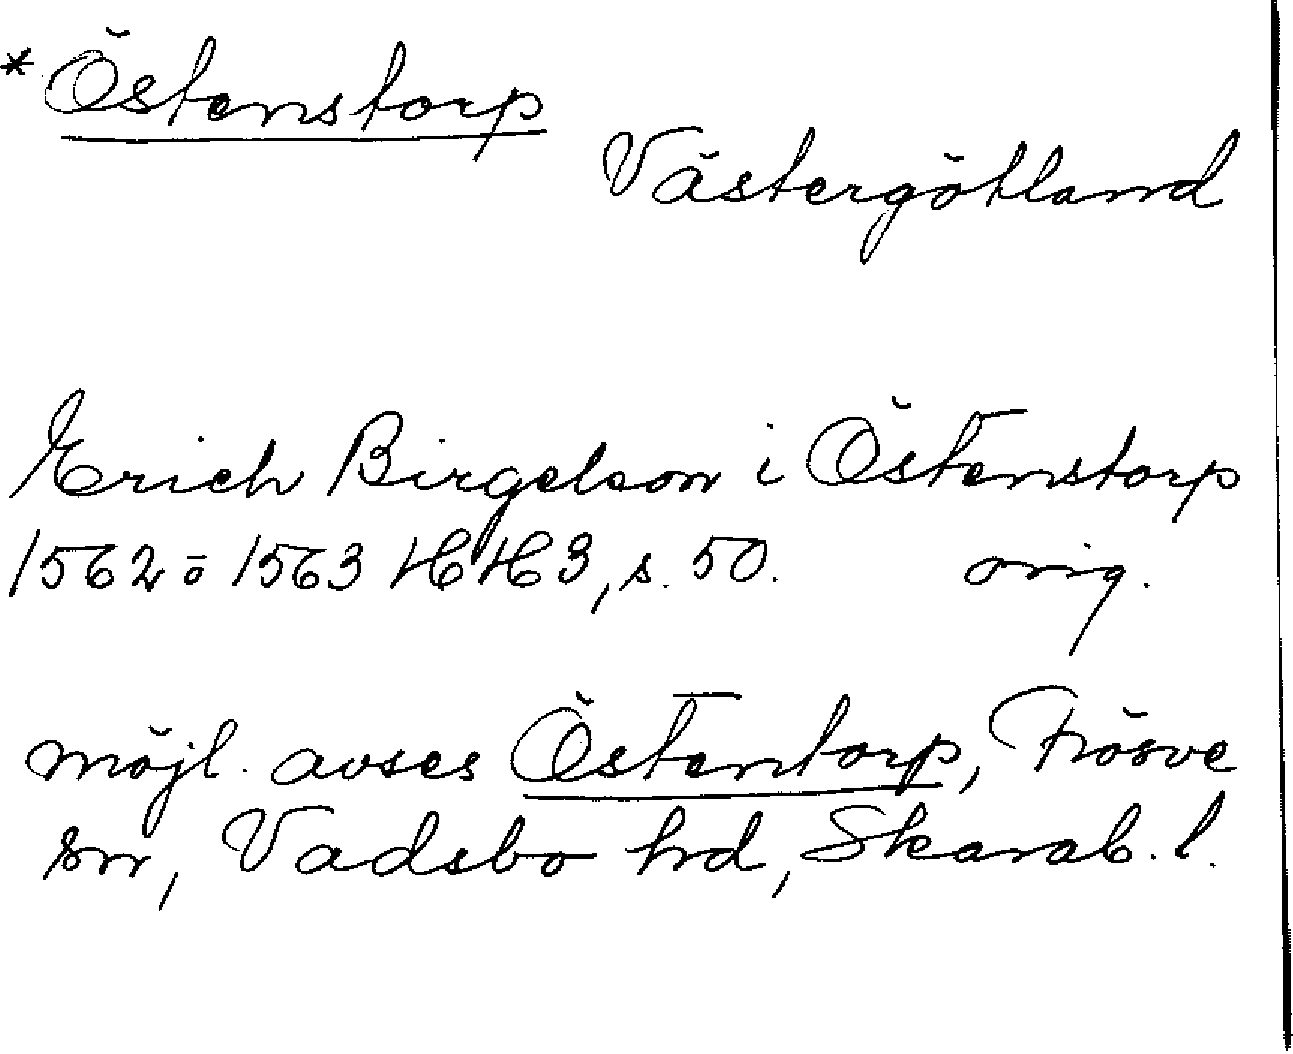 * Östenstorp
Västergötland
Erich Birgelson i Östenstorp
1562 ö 1563 HH 3, s. 50. orig.
möjl. avses Östentorp, Frösve
sn, Vadsbo hd, Skarab. l.